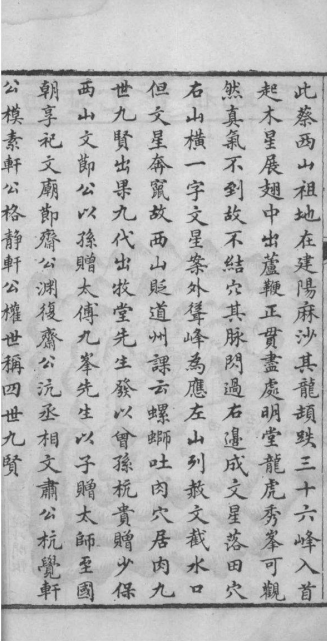 此蔡西山祖地在建陽麻沙其龍頓跌三十六峰入首
起木星展翅中出蘆鞭正貫盡處明堂龍虎秀峯可觀
然真氣不到故不結穴其脉閃過右邉成文星落田穴
右山橫一字文星案外聳峰為應左山列赦文截水口
但文星奔竄故西山貶道州課云螺螄吐肉穴居肉九
世九賢出果九代出牧堂先生發以曾孫杭貴贈少保
西山文節公以孫贈太傅九峯先生以子贈太師至國
朝享祀文廟節齋公淵復齋公沆丞相文肅公杭覺軒
公模素軒公格靜軒公權世稱四世九賢